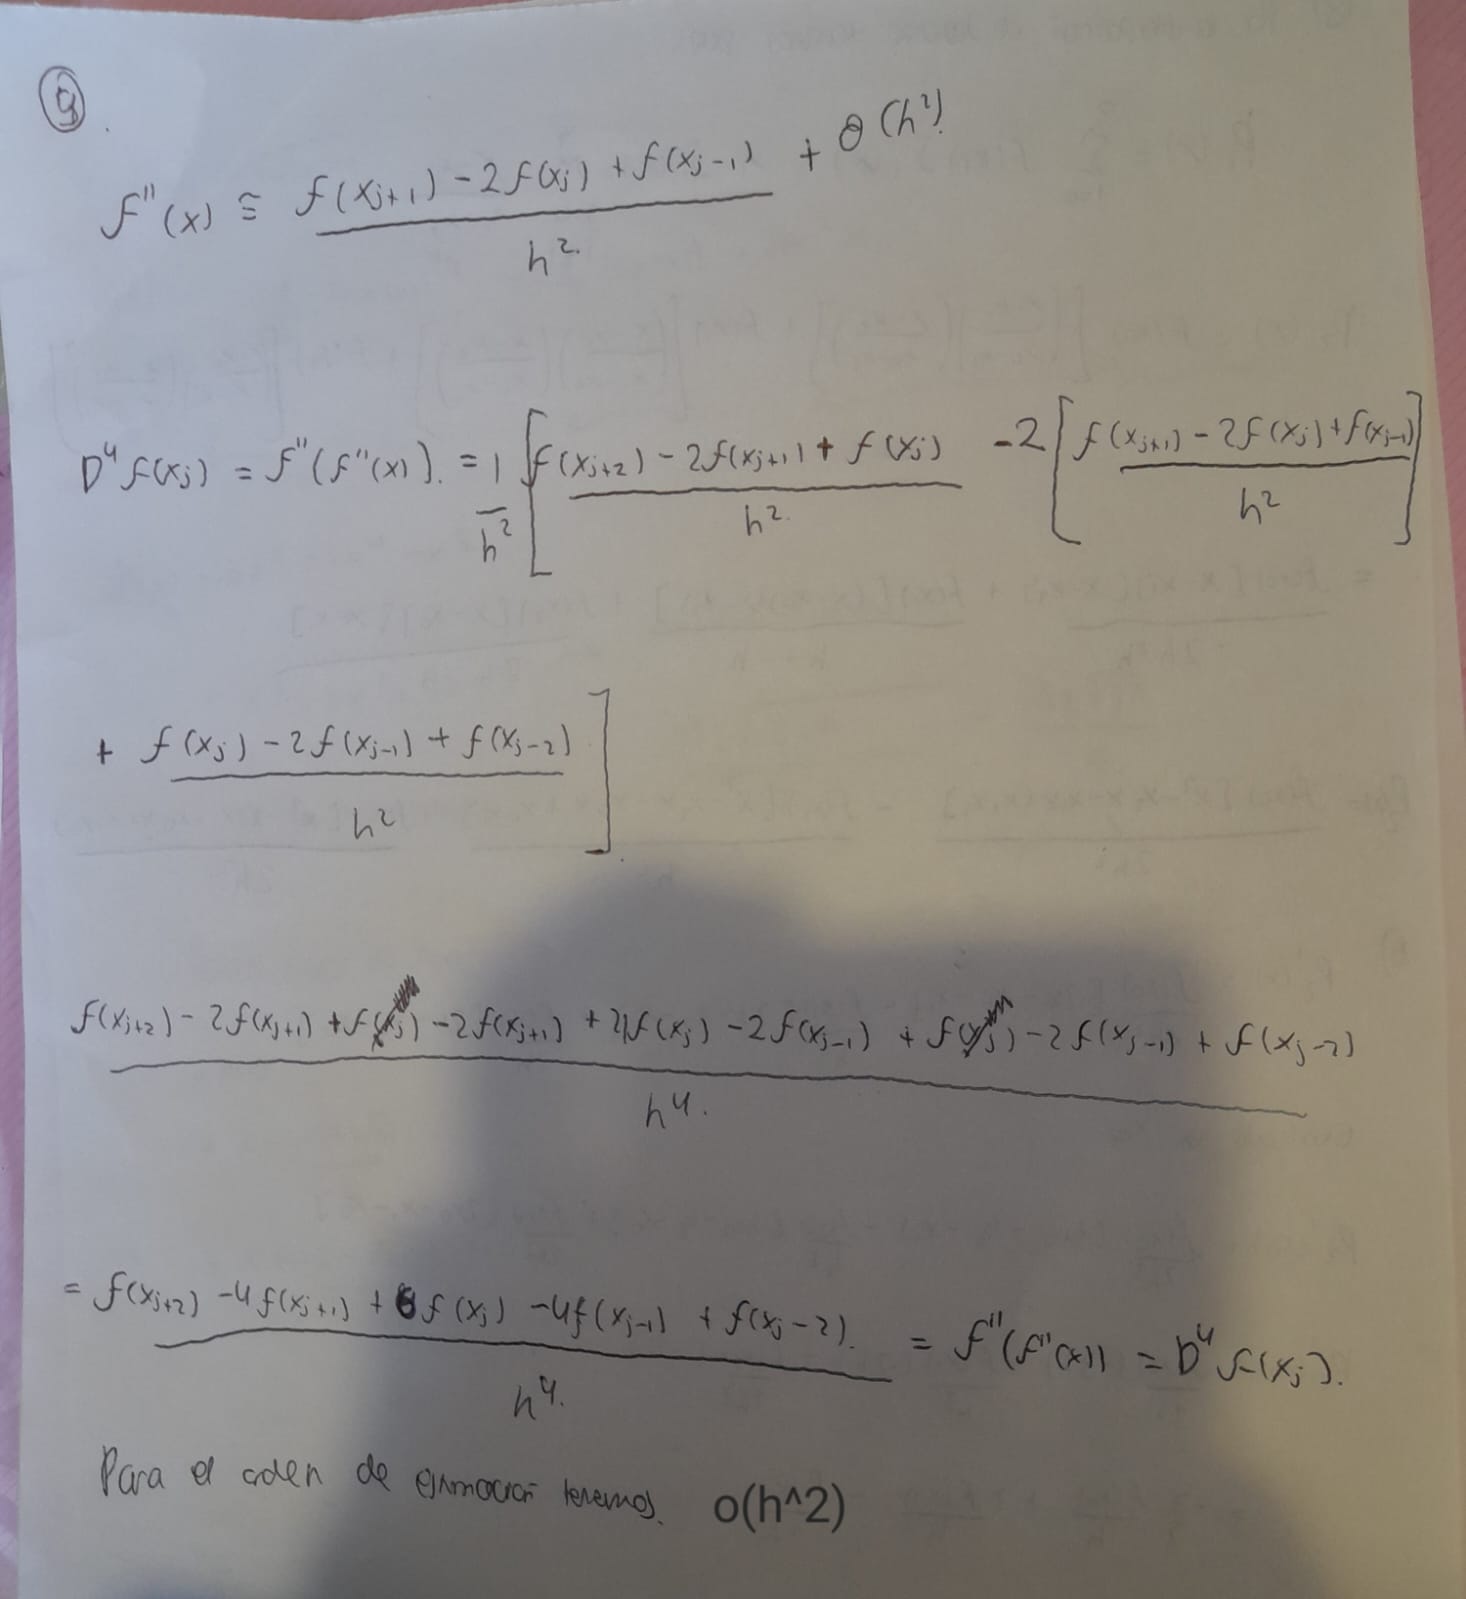 9.
f''(x) ≅ f(xj+1) - 2f(xj) + f(xj-1) / h² + θ(h²)
D⁴f(xj) = f''(f''(x)). = 1/h² [ f(xj+2) - 2f(xj+1) + f(xj) / h² - 2 [ f(xj+1) - 2f(xj) + f(xj-1) / h² ]
+ f(xj) - 2f(xj-1) + f(xj-2) / h² ]
f(xj+2) - 2f(xj+1) + f(xj) - 2f(xj+1) + 4f(xj) - 2f(xj-1) + f(xj) - 2f(xj-1) + f(xj-2) / h⁴.
= f(xj+2) - 4f(xj+1) + 6f(xj) - 4f(xj-1) + f(xj-2). / h⁴. = f''(f''(x)) = D⁴f(xj).
Para el orden de tenemos. o(h^2)